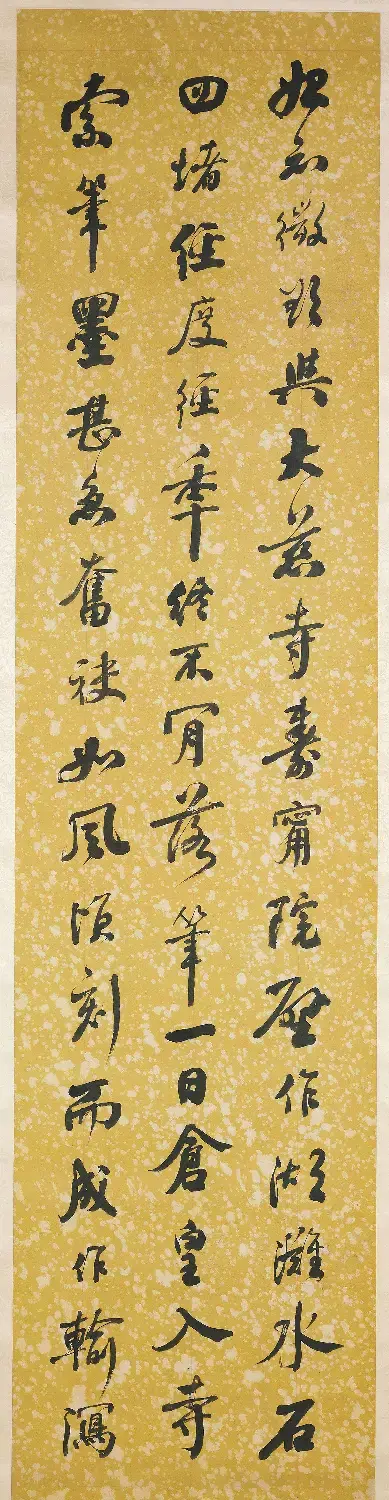 始知微欲與大慈寺壽甯院壁作湖灘水石
四堵經度經年終不肎落筆一日倉皇入寺
索筆墨甚急奮袂如風頃刻而成作輸瀉